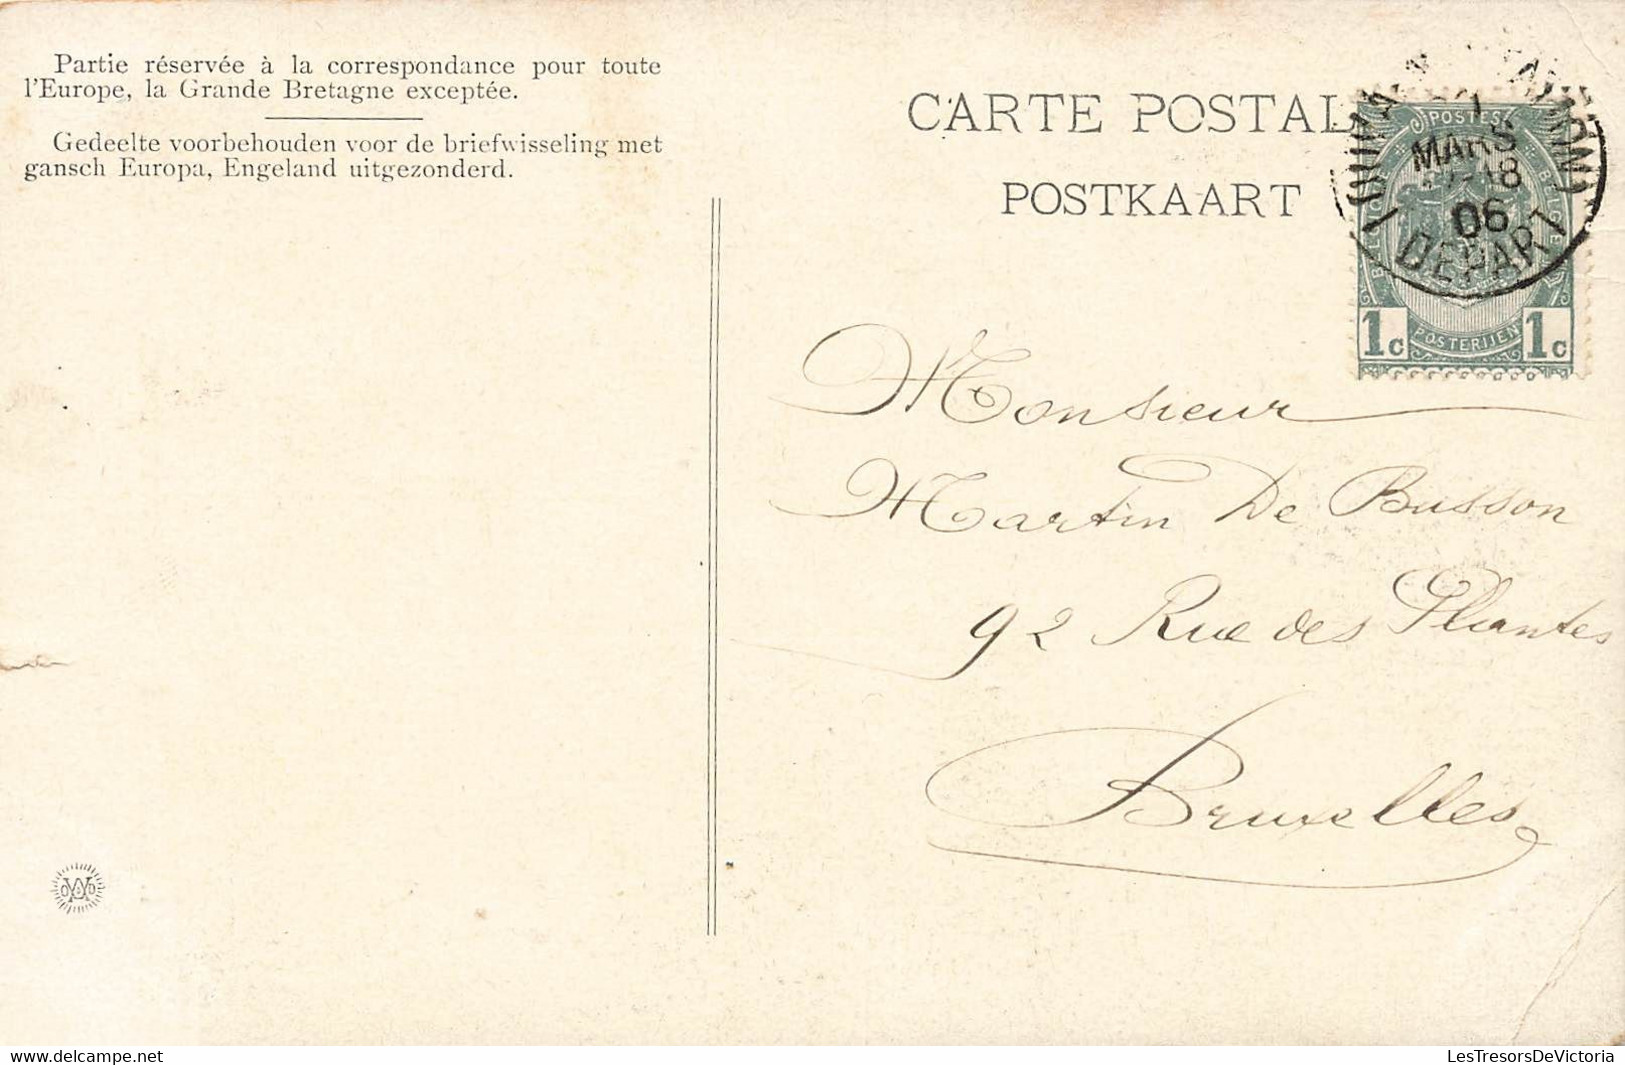 Partie réservée à la correspondance pour toute
l'Europe, la Grande Bretagne exceptée.
Gedeelte voorbehouden voor de briefwisseling met
gansch Europa, Engeland uitgezonderd.
CARTE POSTAL
POSTKAART
POSTES
MARS
06
DEPART
BELGIQUE
BELGIE
1c
POSTERIJEN
1c
Monsieur
Martin De Busson
92 Rue des Plantes
Bruxelles
LesTresorsDeVictoria
delcampe.net